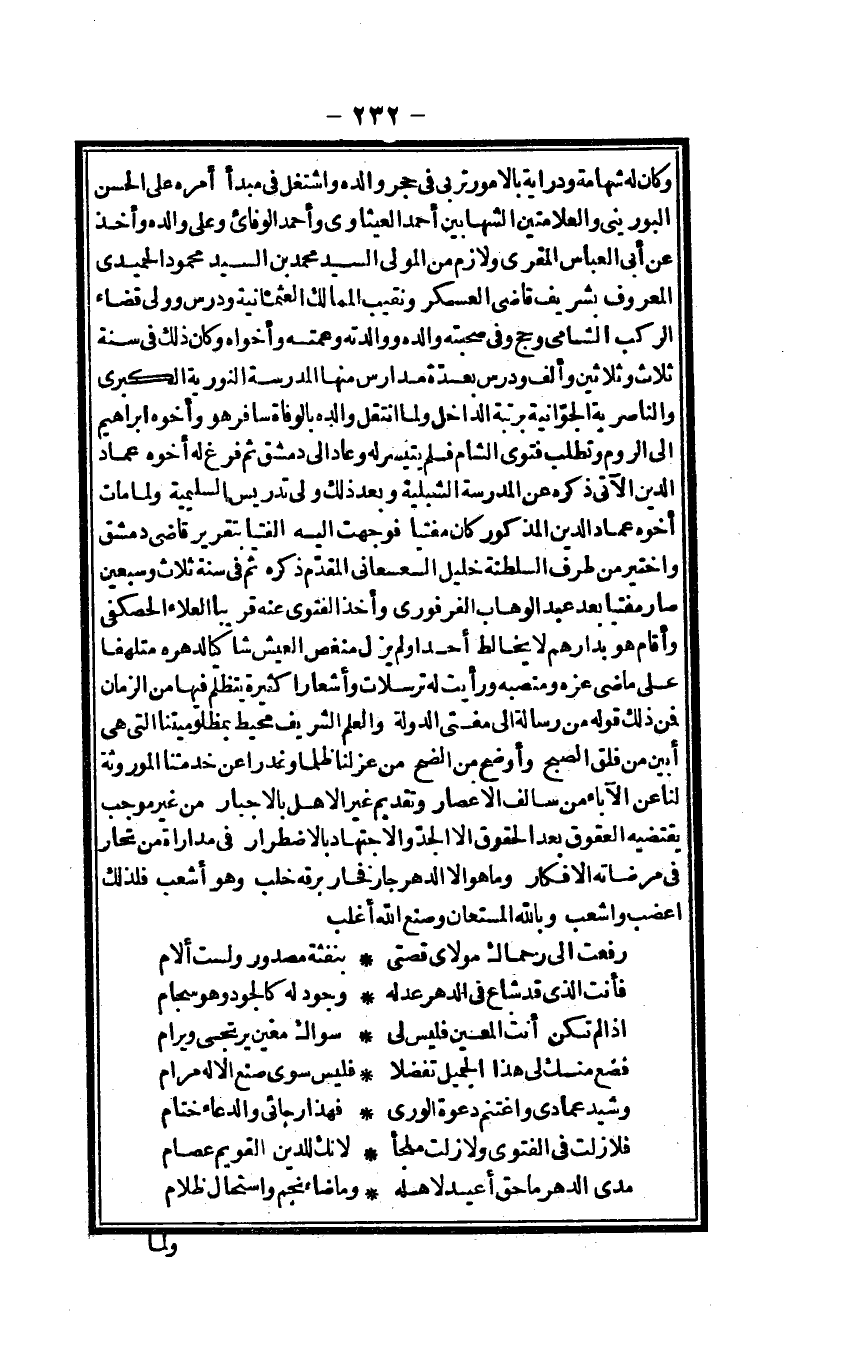 - ٢٣٢ -
وكان له شهامة ودراية بالامور تربى فى حجر والده واشتغل فى مبدأ أمره على الحسن
البورينى والعلامتين الشهابين أحمد العيثاوى وأحمد الوفائى وعلى والده وأخذ
عن أبى العباس المقرى ولازم من المولى السيد محمد بن السيد محمود الحميدى
المعروف بشريف قاضى العسكر ونقيب الممالك العثمانية ودرس وولى قضاء
الركب الشامى وحج وفى صحبته والده ووالدته وعمته وأخواه وكان ذلك فى سنة
ثلاث وثلاثين وألف ودرس بعدّة مدارس منها المدرسة النورية الكبرى
والناصرية الجوّانية برتبة الداخل ولما انتقل والده بالوفاة سافر هو وأخوه ابراهيم
الى الروم وتطلب فتوى الشام فلم يتيسر له وعاد الى دمشق ثم فرغ له أخوه عماد
الدين الآتى ذكره عن المدرسة الشبلية وبعد ذلك ولى تدريس السليمية ولما مات
أخوه عماد الدين المذكور كان مفتيا فوجهت اليه الفتيا بتقرير قاضى دمشق
واختير من طرف السلطنة خليل السعسعانى المقدّم ذكره ثم فى سنة ثلاث وسبعين
صار مفتيا بعد عبد الوهاب الفرفورى وأخذ الفتوى عنه قريبا العلاء الحصكفى
وأقام هو بدارهم لا يخالط أحدا ولم يزل منغص العيش شاكا لدهره متلهفا
على ماضى عزه ومنصبه ورأيت له ترسلات وأشعارا كثيرة يتظلم فيها من الزمان
فمن ذلك قوله من رسالة الى مفتى الدولة والعلم الشريف محيط بمظلوميتنا التى هى
أبين من فلق الصبح وأوضح من الضح من عزلنا ظلما وغدرا عن خدمتنا الموروثة
لنا عن الآباء من سالف الاعصار وتقديم غير الاهل بالاجبار من غير موجب
يقتضيه العقوق بعد الحقوق الا الجدّ والاجتهاد بالاضطرار فى مداراة من تحار
فى مرضاته الافكار وما هو الا الدهر جار فحار برقه خلب وهو أشعب فلذلك
اعضب واشعب وبالله المستعان وصنع الله أغلب
رفعت الى رحماك مولاى قصتى * بنفثة مصدور ولست ألام
فأنت الذى قد شاع فى الدهر عدله * وجود له كالجود وهو سجام
اذا لم تكن أنت المعين فليس لى * سواك معين يرتجى ويرام
فضع منك لى هذا الجميل تفضلا * فليس سوى صنع الاله مرام
وشيد عمادى واغتنم دعوة الورى * فهذا رجائى والدعاء ختام
فلا زلت فى الفتوى ولا زلت ملجأ * لانك للدين القويم عصام
مدى الدهر ما حق أعيد لاهله * وما ضاء نجم واستحال ظلام
ولما